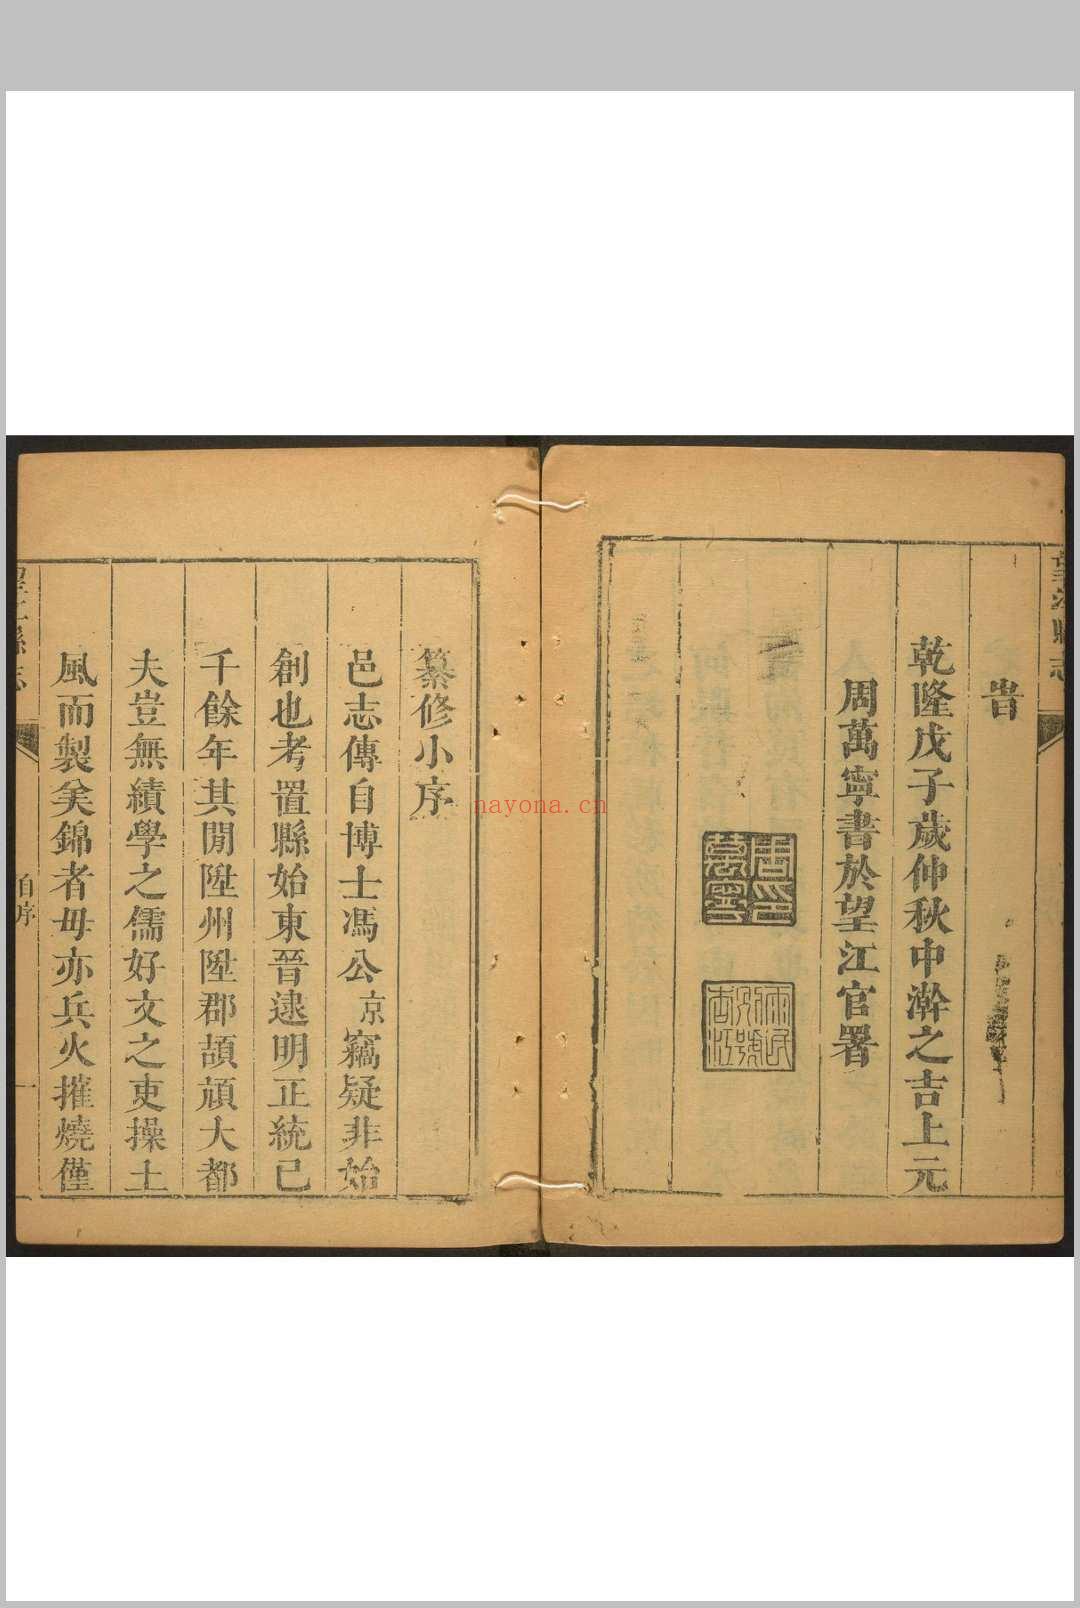 望江縣志
旹
乾隆戊子歲仲秋中澣之吉上元
周萬寧書於望江官署
纂修小序
邑志傳自博士馮公京竊疑非始
創也考置縣始東晉逮明正統已
千餘年其閒陞州陞郡頡頏大都
夫豈無績學之儒好文之吏操土
風而製美錦者毋亦兵火摧燒僅
望江縣志
自序
一
nayona.cn